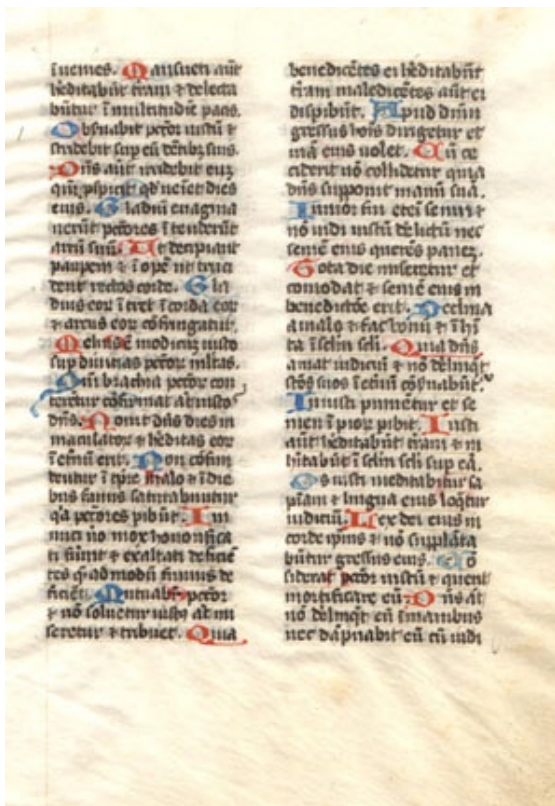 īuenies. Mansueti aūt
hēditabūt t̄ram ⁊ delecta
būtur ī multitudīe pacis.
Obseruabit pctōr iustū ⁊
stridebit sup eū dētibꝫ suis.
Dñs aūt irridebit euꝫ
qm̄ pspicit qđ ueiet dies
eius. Gladiū euagina
uerūt pctōres ītenderūt
arcū suū. Ut decipiant
paupem ⁊ īopē ut truci
dent rectos corde. Gla
dius eoꝝ ītret ī corda eoꝝ
⁊ arcus eoꝝ cōfringatur.
Melius ē modicū iusto
sup diuitias pctōꝝ mltas.
Qm̄ brachia pctōꝝ con
terētur cōfirmat at iustos
dñs. Nouit dñs dies in
maculatoꝝ ⁊ hēditas eoꝝ
ī et̄nū erit. Non cōfun
dentur ī tp̄re malo ⁊ ī die
bus famis saturabuntur
qa pctōres pibūt. In
imici ūo mox honorifica
ti fūint ⁊ exaltati deficiē
tes q̄ admodū fumus de
ficiet. Mutuabit̄ pctōr
⁊ nō soluet iustꝰ at mi
seretur ⁊ tribuet. Quia
benedicētes ei hēditabūt
t̄ram maledicētes aūt ei
dispibūt. Apud dnm̄
gressus hoīs dirigetur et
uiā eius uolet. Cū ce
ciderit nō collidetur quia
dñs supponit manū suā.
Iunior fui etēi senui ⁊
nō uidi iustū đelictū nec
semē eius querēs paneꝫ.
Tota die miseretur et
comodat ⁊ semē eius in
benedictōe erit. Declina
a malo ⁊ fac bonū ⁊ īhī
ta ī sclm̄ scli. Quia dñs
amat iudiciū ⁊ nō đelīqt
sc̄tos suos ī et̄nū cōs̄uabūt᷑.
Iniusti punietur et se
men īpioꝝ pibit. Iusti
aūt hēditabūt t̄ram ⁊ in
hītabūt ī sclm̄ scli sup eā.
Os iusti meditabitur sa
piam ⁊ lingua eius loq̄tur
iudiciū. Lex dei eius in
corde ipius ⁊ nō supplāta
būtur gressus eius. Cō
siderat pctōr iustū ⁊ querit
mortificare eū. Dñs at
nō đelīqet eū ī manibus
nec dāpnabit eū cū iudi